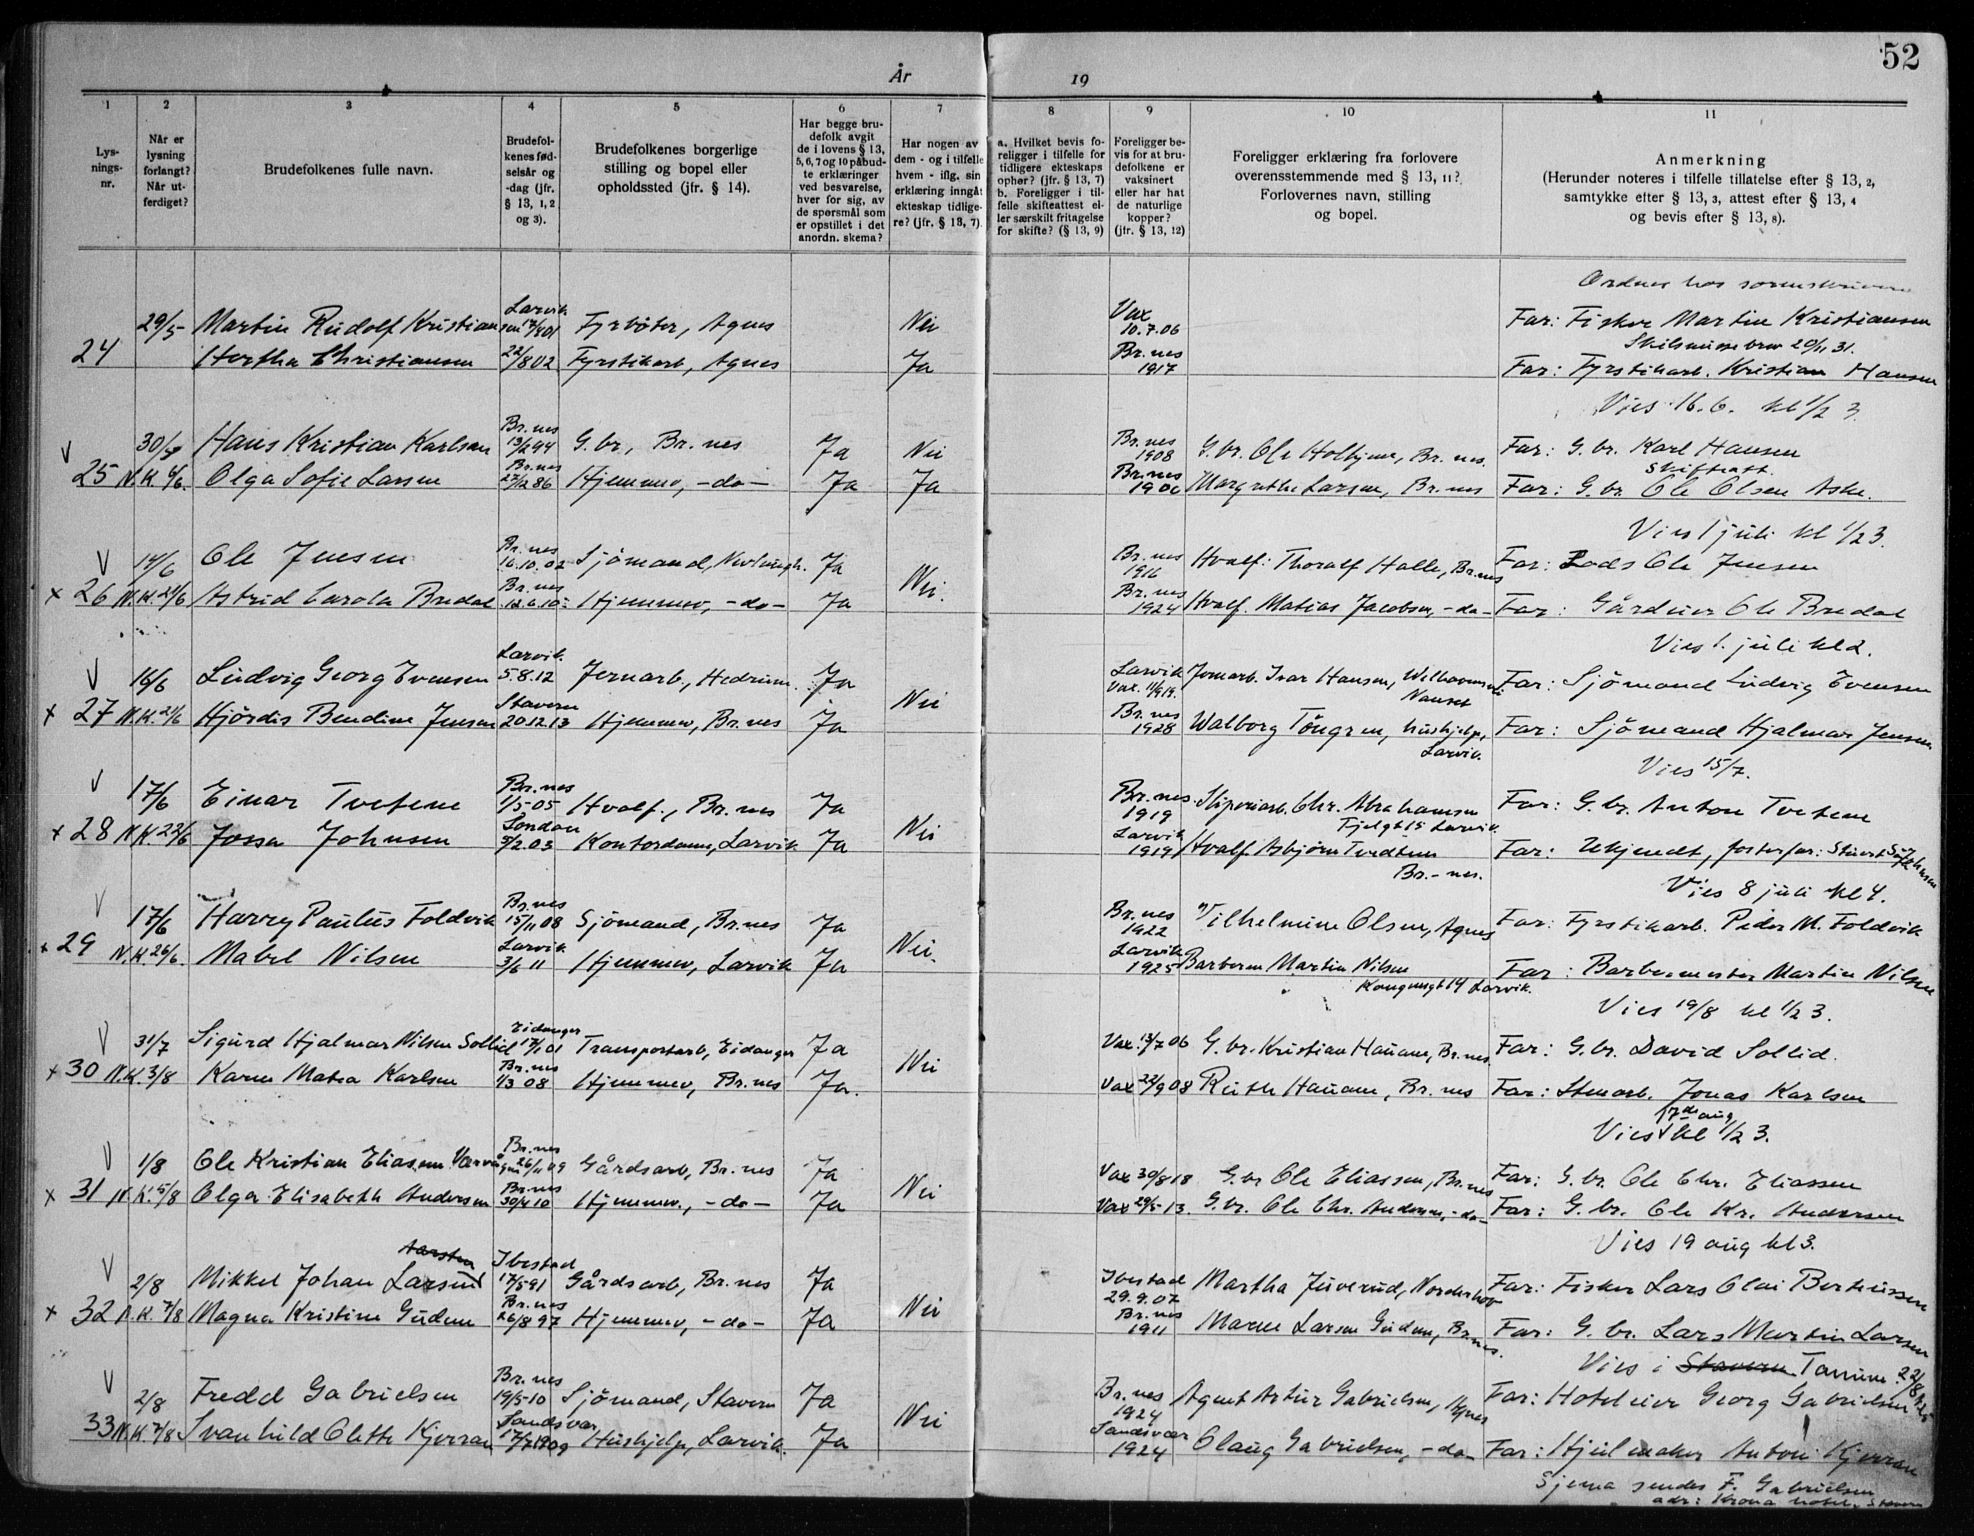 52
År
19
1
2
3
4
5
6
7
8
9
10
11
Lys-
nings-
nr.
Når er
lysning
forlangt?
Når ut-
ferdiget?
Brudefolkenes fulle navn.
Brudefol-
kenes fød-
selsår og
-dag (jfr.
§ 13, 1, 2
og 3).
Brudefolkenes borgerlige
stilling og bopel eller
opholdssted (jfr. § 14).
Har begge bru-
defolk avgit
de i lovens § 13,
5, 6, 7 og 10 påbud-
te erklæringer
ved besvarelse,
hver for sig, av
de spørsmål som
er opstillet i det
anordn. skema?
Har nogen av
dem - og i tilfelle
hvem - iflg. sin
erklæring inngåt
ekteskap tidlige-
re? (jfr. § 13, 7).
a. Hvilket bevis fo-
religger i tilfelle for
tidligere ekteskaps
ophør? (jfr. § 13, 7)
b. Foreligger i til-
felle skifteattest el-
ler særskilt fritagelse
for skifte? (§ 13, 9)
Foreligger be-
vis for at bru-
defolkene er
vaksinert
eller har hat
de naturlige
kopper?
(jfr. § 13, 12)
Foreligger erklæring fra forlovere
overensstemmende med § 13, 11?
Forlovernes navn, stilling
og bopel.
Anmerkning
(Herunder noteres i tilfelle tillatelse efter § 13, 2,
samtykke efter § 13, 3, attest efter § 13, 4
og bevis efter § 13, 8).
Ordnes hos sorenskriveren
24 29/5 Martin Rudolf Kristiansen Larvik 17/8 01 Fyrbøter, Agnes Nei Vax 10.7.06 Far: Fisker Martin Kristiansen
Skilsmisse brev 20/11 31.
Hertha Christiansen 22/8 02 Fyrstikarb, Agnes Ja Br.nes 1917 Far: Fyrstikarb. Kristian Hansen
Vies 16.6. kl 1/2 3
V 25 30/5 Hans Kristian Karlsen Br.nes 13/2 94 G.br, Br.nes Ja Nei Br.nes 1908 G.br. Ole Holhjem, Br.nes. Far: G.br. Karl Hansen
Skifteatt.
N.K. 6/6. Olga Sofie Larsen Br.nes 27/12 86 Hjemmev, -do- Ja Ja Br.nes 1906 Margrethe Larsen, Br.nes Far: G.br. Ole Olsen Aske.
Vies 1 juli kl 1/2 3.
V x 26 14/6 Ole Jensen Br.nes 16.10.02 Sjømand, Ja Nei. Br.nes 1916 Hvalf. Thoralf Halle, Br.nes Far: Lods Ole Jensen
N.K. 21/6 Astrid Carola Bredal Br.nes 12.6.10 Hjemmev, -do- Ja Br.nes 1924 Hvalf. Matias Jacobsen, -do- Far: Gårdeier Ole Bredal
Vies 1. juli kl 2.
V x 27 16/6 Ludvig Georg Evensen Larvik. 5.8.12 Jernarb., Hedrum. Ja Nei Larvik Vax. 11/6 19. Jernarb. Ivar Hansen, Nanset Far: Sjømand Ludvig Evensen
N.K. 21/6 Hjördis Bendine Jensen Stavern 20.12.13 Hjemmev, Br.nes Ja Br.nes 1928 Walborg Töngren, hushjelp, Larvik. Far: Sjömand Hjalmar Jensen
Vies 15/7.
V x 28 17/6 Einar Tvetene Br.nes 1/5-05 Hvalf., Br.nes Ja Nei Br.nes 1919 Chr. Abrahamsen Fjelgt 15 Larvik Far: G.br. Anton Tvetene
N.K. 22/6 Jossa Johnsen London 3/2.03 Kontordame, Larvik Ja Larvik 1919 Hvalf. Asbjörn Tvedten Br.-nes. Far: Ukjendt, fosterfar:
Vies 8 juli kl 4.
V x 29 17/6 Harry Paulus Foldvik Br.nes 15/11 08 Sjömand, Br.nes Ja Nei. Br.nes 1922 Vilhelmine Olsen, Agnes Far: Fyrstikarb. Peder M. Foldvik
N.K. 26/6. Mabel Nilsen Larvik 3/6 11 Hjemmev, Larvik Ja Larvik 1925 Barberm Martin Nilsen Kongensgt 14 Larvik. Far: Barbermester Martin Nilsen
Vies 19/8 kl 1/2 3.
V x 30 31/7 Sigurd Hjalmar Nilsen Sollid Eidanger 17/1 01 Transportarb, Eidanger Ja Nei Vax. 13/7 06 G.br. Kristian Hauane, Br.nes. Far: G.br. David Sollid.
N.K. 3/8 Karen Matea Karlsen Br.nes 1/3 08 Hjemmev, Br.nes Ja. Vax 22/9 08 Ruth Hauane, Br.nes Far: Stenarb. Jonas Karlsen
Vies 17de aug kl 1/2 3.
V x 31 1/8 Ole Kristian Eliassen Br.nes 26/11 09 Gårdsarb, Br.nes Ja Nei Vax 30/8 18 G.br Ole Eliassen, Br.nes Far: G.br. Ole Chr. Eliassen
N.K. 5/8 Olga Elisabeth Andersen Br.nes 30/4 10 Hjemmev., -do- Ja Vax 29/5-13. G.br. Ole Chr. Andersen, -do- Far: G.br. Ole Kr. Andersen
Vies 19 aug kl 3.
V x 32 2/8 Mikkel Johan Larsen Ibestad 17/5 91 Gårdsarb, Br.nes Ja Nei Ibestad 29.9.07 Martha Juverud, Norderhov Far: Fisker Lars Olai Berteussen
N.K. 7/8 Magna Kristine Gudem Br.nes 26/8 97 Hjemmev, -do- Ja Br.nes 1911 Maren Larsen Gudem, Br.nes. Far: G.br. Lars Martin Larsen
Vies i Stavern Tanum 22/8
V 33 2/8 Fredd Gabrielsen Br.nes 19/5-10 Sjömand, Stavern Ja Nei Br.nes 1924 Agent Artur Gabrielsen, Agnes Far: Hoteleier Georg Gabrielsen
N.K. 7/8 Svanhild Olette Kjerran Sandsvær 17/7 1909 Hushjelp, Larvik. Ja Sandsvær 1924 Olaug Gabrielsen, -do- Far: Hjulmaker Anton Kjerran
Sjema sendes F. Gabrielsen
adr: Krona hotel, Stavern